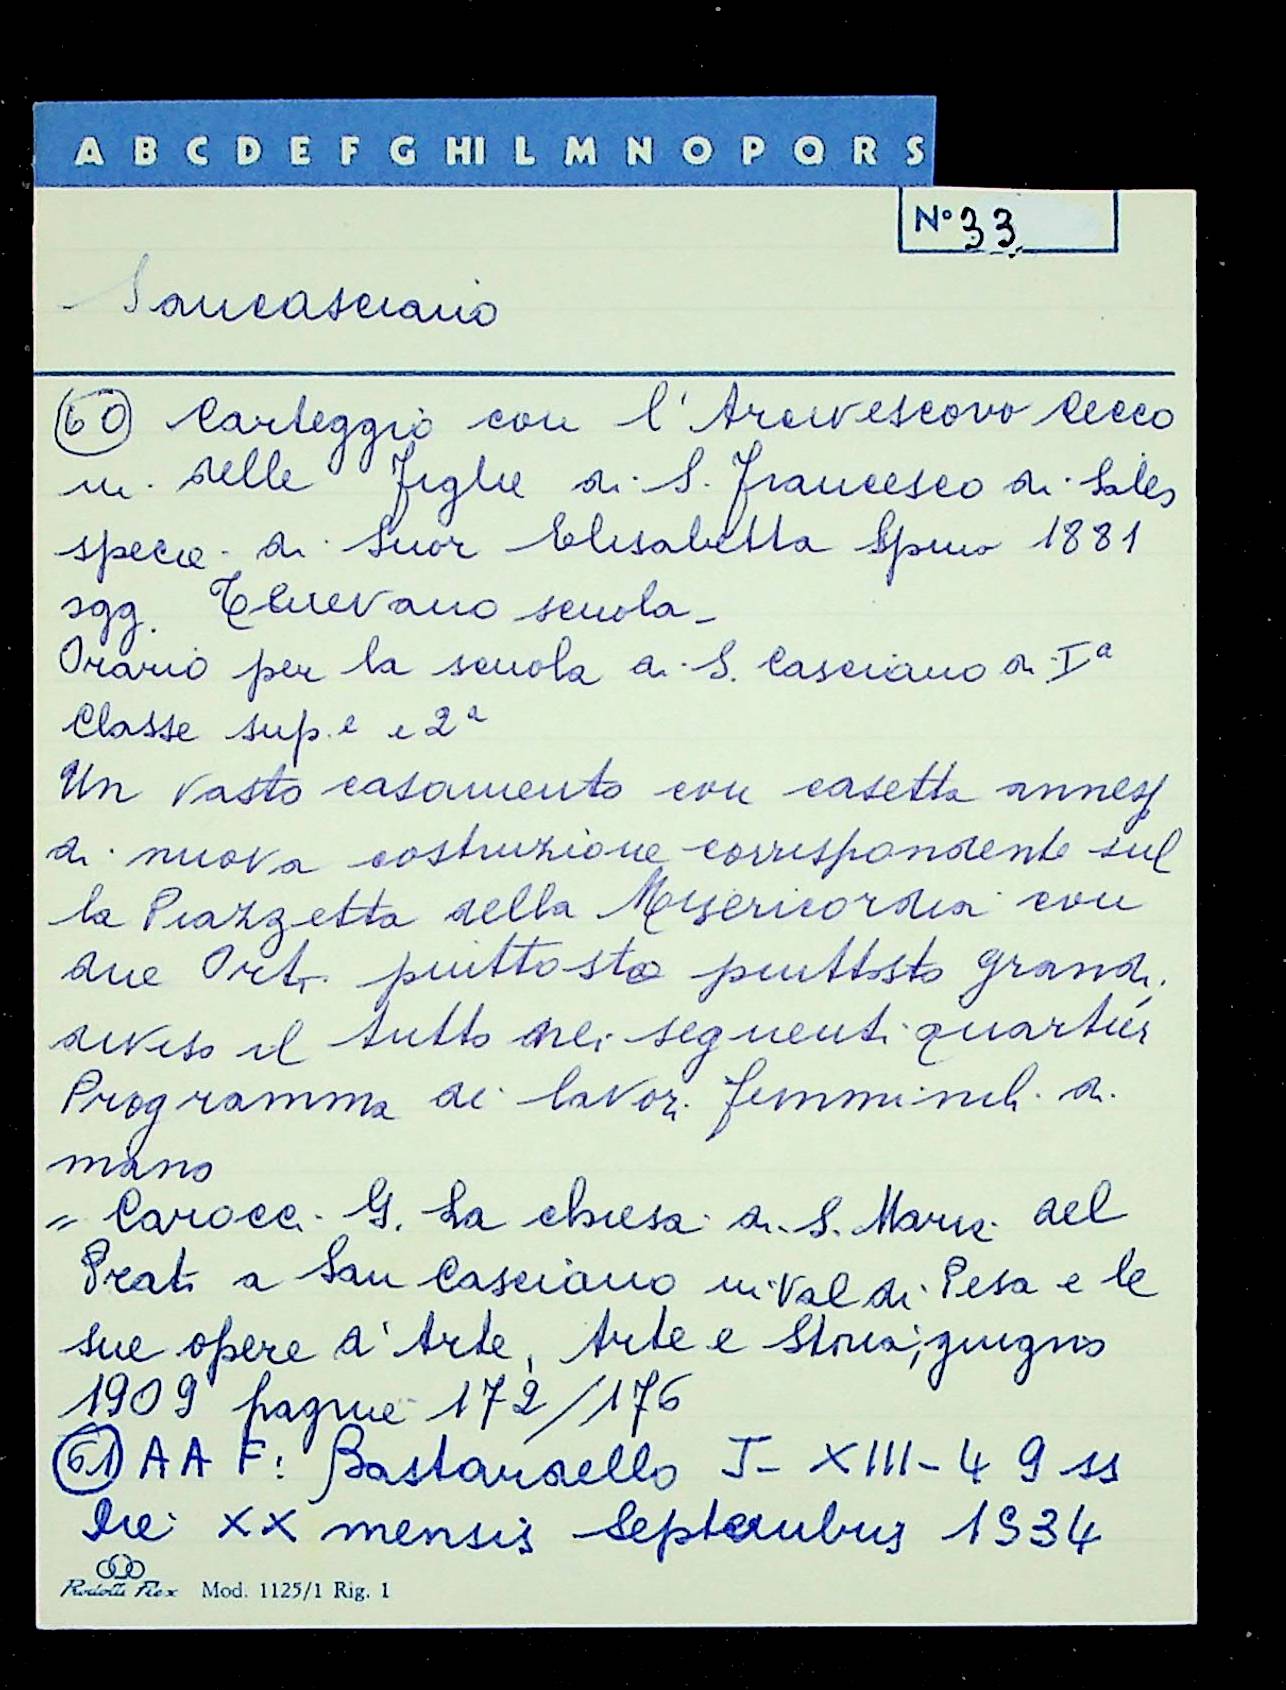 A B C D E F G HI L M N O P Q R S
N° 33
Sancasciano
60 Carteggio con l'Arcivescovo Cecco
ni delle Figlie di S. Francesco di Sales
specie di Suor Elisabetta Spino 1881
sgg. Tenevano scuola -
Orario per la scuola di S. Casciano di Iª
Classe sup.e e 2ª
Un vasto casamento con casetta annessa
di nuova costruzione corrispondente sul
la Piazzetta della Misericordia con
due Orti piuttosto piuttosto grandi.
diviso il tutto nei seguenti quartieri
Programma di lavori femminili di
mano
= Carocci G. La chiesa di S. Maria del
Prato a San Casciano in Val di Pesa e le
sue opere d'Arte, Arte e Storia, giugno
1909 pagine 172/176
61 A A F: Bastardello I - XIII - 4 9 ss
Die XX mensis Septembris 1934
Mod. 1125/1 Rig. 1